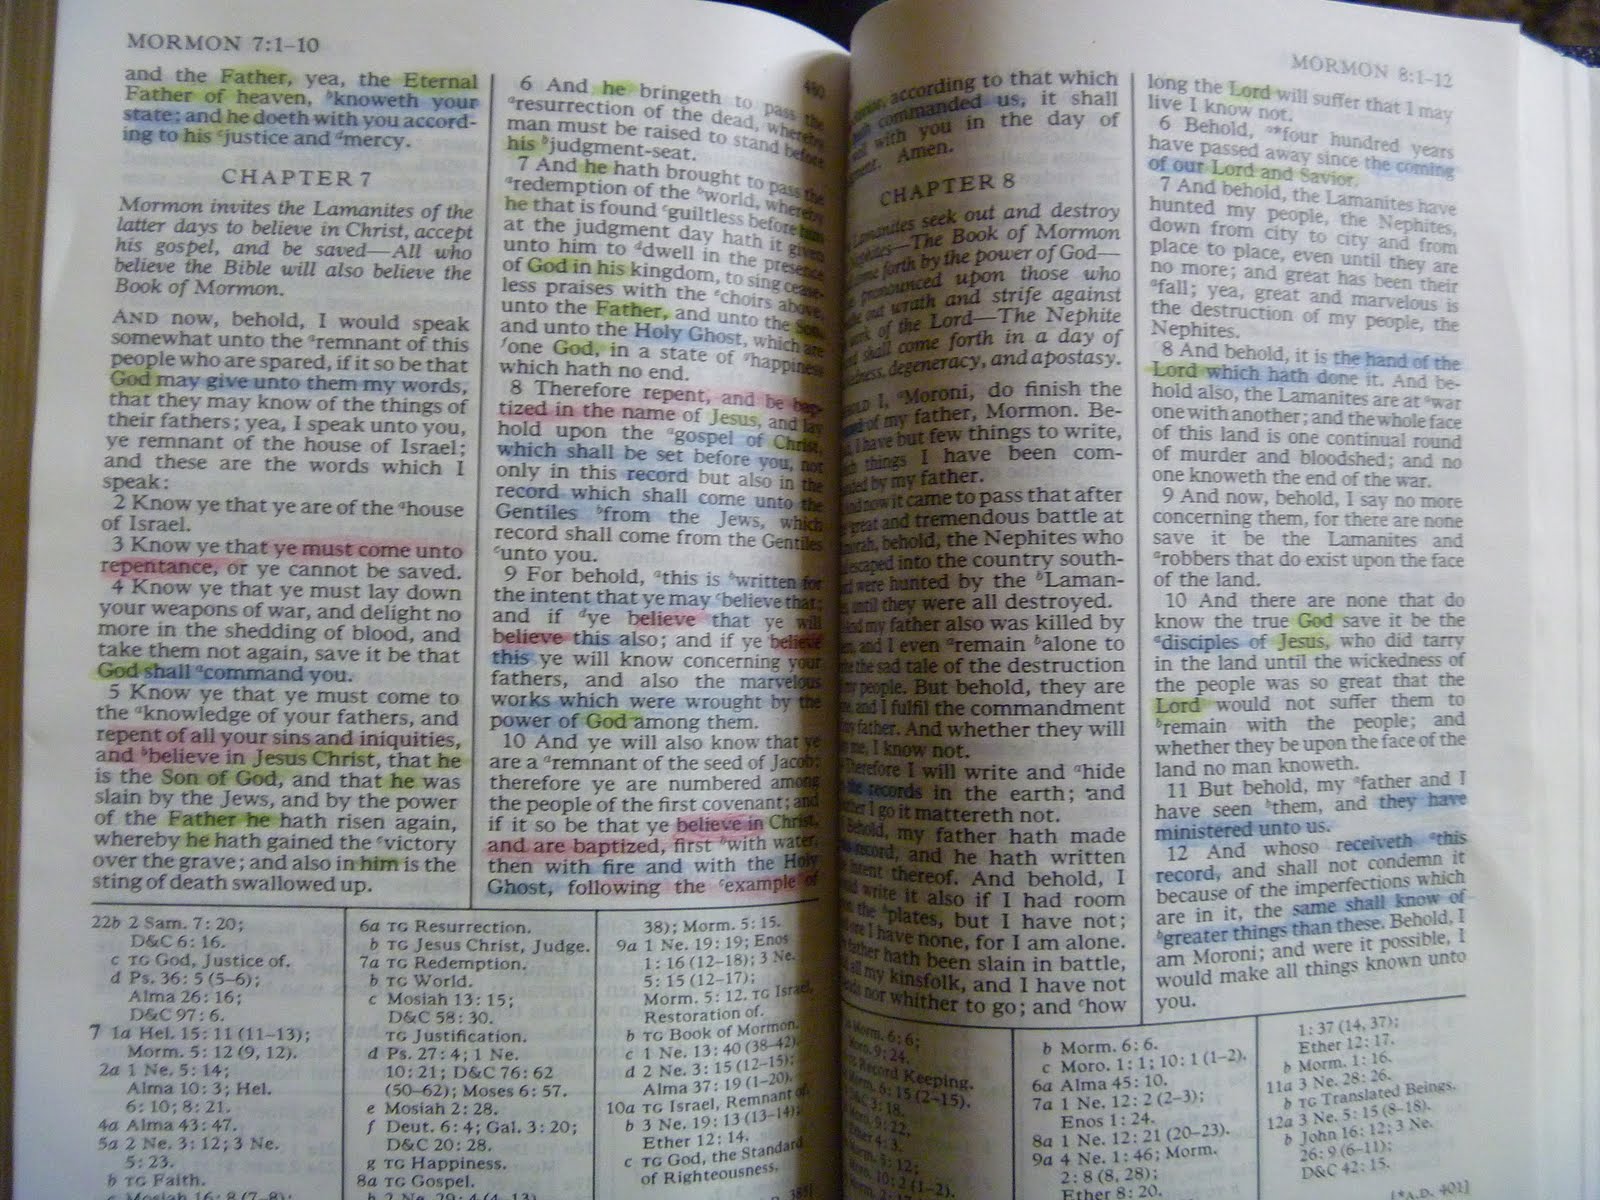 MORMON 7:1–10
460
and the Father, yea, the Eternal
Father of heaven, bknoweth your
state; and he doeth with you accord-
ing to his cjustice and dmercy.
CHAPTER 7
Mormon invites the Lamanites of the
latter days to believe in Christ, accept
his gospel, and be saved—All who
believe the Bible will also believe the
Book of Mormon.
AND now, behold, I would speak
somewhat unto the aremnant of this
people who are spared, if it so be that
God may give unto them my words,
that they may know of the things of
their fathers; yea, I speak unto you,
ye remnant of the house of Israel;
and these are the words which I
speak:
2 Know ye that ye are of the ahouse
of Israel.
3 Know ye that ye must come unto
repentance, or ye cannot be saved.
4 Know ye that ye must lay down
your weapons of war, and delight no
more in the shedding of blood, and
take them not again, save it be that
God shall acommand you.
5 Know ye that ye must come to
the aknowledge of your fathers, and
repent of all your sins and iniquities,
and bbelieve in Jesus Christ, that he
is the Son of God, and that he was
slain by the Jews, and by the power
of the Father he hath risen again,
whereby he hath gained the cvictory
over the grave; and also in him is the
sting of death swallowed up.
6 And he bringeth to pass the
aresurrection of the dead, whereby
man must be raised to stand before
his bjudgment-seat.
7 And he hath brought to pass the
aredemption of the bworld, whereby
he that is found cguiltless before him
at the judgment day hath it given
unto him to ddwell in the presence
of God in his kingdom, to sing cease-
less praises with the echoirs above,
unto the Father, and unto the Son,
and unto the Holy Ghost, which are
fone God, in a state of ghappiness
which hath no end.
8 Therefore repent, and be bap-
tized in the name of Jesus, and lay
hold upon the agospel of Christ,
which shall be set before you, not
only in this record but also in the
record which shall come unto the
Gentiles bfrom the Jews, which
record shall come from the Gentiles
cunto you.
9 For behold, athis is bwritten for
the intent that ye may cbelieve that;
and if dye believe that ye will
believe this also; and if ye believe
this ye will know concerning your
fathers, and also the marvelous
works which were wrought by the
power of God among them.
10 And ye will also know that ye
are a aremnant of the seed of Jacob;
therefore ye are numbered among
the people of the first covenant; and
if it so be that ye believe in Christ,
and are baptized, first bwith water,
then with fire and with the Holy
Ghost, following the cexample of
22b 2 Sam. 7: 20;
D&C 6: 16.
c TG God, Justice of.
d Ps. 36: 5 (5–6);
Alma 26: 16;
D&C 97: 6.
7 1a Hel. 15: 11 (11–13);
Morm. 5: 12 (9, 12).
2a 1 Ne. 5: 14;
Alma 10: 3; Hel.
6: 10; 8: 21.
4a Alma 43: 47.
5a 2 Ne. 3: 12; 3 Ne.
5: 23.
b TG Faith.
c Mosiah 16: 8 (7–8);
6a TG Resurrection.
b TG Jesus Christ, Judge.
7a TG Redemption.
b TG World.
c Mosiah 13: 15;
D&C 58: 30.
TG Justification.
d Ps. 27: 4; 1 Ne.
10: 21; D&C 76: 62
(50–62); Moses 6: 57.
e Mosiah 2: 28.
f Deut. 6: 4; Gal. 3: 20;
D&C 20: 28.
g TG Happiness.
8a TG Gospel.
b 2 Ne. 29: 4 (4–13)
38); Morm. 5: 15.
9a 1 Ne. 19: 19; Enos
1: 16 (12–18); 3 Ne.
5: 15 (12–17);
Morm. 5: 12. TG Israel,
Restoration of.
b TG Book of Mormon.
c 1 Ne. 13: 40 (38–42).
d 2 Ne. 3: 15 (12–15);
Alma 37: 19 (1–20).
10a TG Israel, Remnant of.
b 3 Ne. 19: 13 (13–14);
Ether 12: 14.
c TG God, the Standard
of Righteousness.
385]
MORMON 8:1–12
according to that which
commanded us, it shall
with you in the day of
Amen.
CHAPTER 8
Lamanites seek out and destroy
—The Book of Mormon
forth by the power of God—
pronounced upon those who
out wrath and strife against
of the Lord—The Nephite
shall come forth in a day of
degeneracy, and apostasy.
I, aMoroni, do finish the
of my father, Mormon. Be-
I have but few things to write,
things I have been com-
by my father.
now it came to pass that after
great and tremendous battle at
behold, the Nephites who
escaped into the country south-
were hunted by the bLaman-
until they were all destroyed.
my father also was killed by
and I even aremain balone to
the sad tale of the destruction
my people. But behold, they are
and I fulfil the commandment
my father. And whether they will
me, I know not.
Therefore I will write and ahide
the records in the earth; and
I go it mattereth not.
Behold, my father hath made
record, and he hath written
intent thereof. And behold, I
write it also if I had room
the bplates, but I have not;
I have none, for I am alone.
father hath been slain in battle,
all my kinsfolk, and I have not
nor whither to go; and chow
long the Lord will suffer that I may
live I know not.
6 Behold, a*four hundred years
have passed away since the coming
of our Lord and Savior.
7 And behold, the Lamanites have
hunted my people, the Nephites,
down from city to city and from
place to place, even until they are
no more; and great has been their
afall; yea, great and marvelous is
the destruction of my people, the
Nephites.
8 And behold, it is the hand of the
Lord which hath done it. And be-
hold also, the Lamanites are at awar
one with another; and the whole face
of this land is one continual round
of murder and bloodshed; and no
one knoweth the end of the war.
9 And now, behold, I say no more
concerning them, for there are none
save it be the Lamanites and
arobbers that do exist upon the face
of the land.
10 And there are none that do
know the true God save it be the
adisciples of Jesus, who did tarry
in the land until the wickedness of
the people was so great that the
Lord would not suffer them to
bremain with the people; and
whether they be upon the face of the
land no man knoweth.
11 But behold, my afather and I
have seen bthem, and they have
ministered unto us.
12 And whoso receiveth athis
record, and shall not condemn it
because of the imperfections which
are in it, the same shall know of
bgreater things than these. Behold, I
am Moroni; and were it possible, I
would make all things known unto
you.
Morm. 6: 6;
9: 24.
Record Keeping.
6: 15 (2–15).
3: 18.
9: 22.
Ether 4: 3.
5: 12;
10: 2 (1–2).
b Morm. 6: 6.
c Moro. 1: 1; 10: 1 (1–2).
6a Alma 45: 10.
7a 1 Ne. 12: 2 (2–3);
Enos 1: 24.
8a 1 Ne. 12: 21 (20–23).
9a 4 Ne. 1: 46; Morm.
2: 8 (8, 28);
Ether 8: 20.
1: 37 (14, 37);
Ether 12: 17.
b Morm. 1: 16.
11a 3 Ne. 28: 26.
b TG Translated Beings.
12a 3 Ne. 5: 15 (8–18).
b John 16: 12; 3 Ne.
26: 9 (6–11);
D&C 42: 15.
[*A.D. 401]